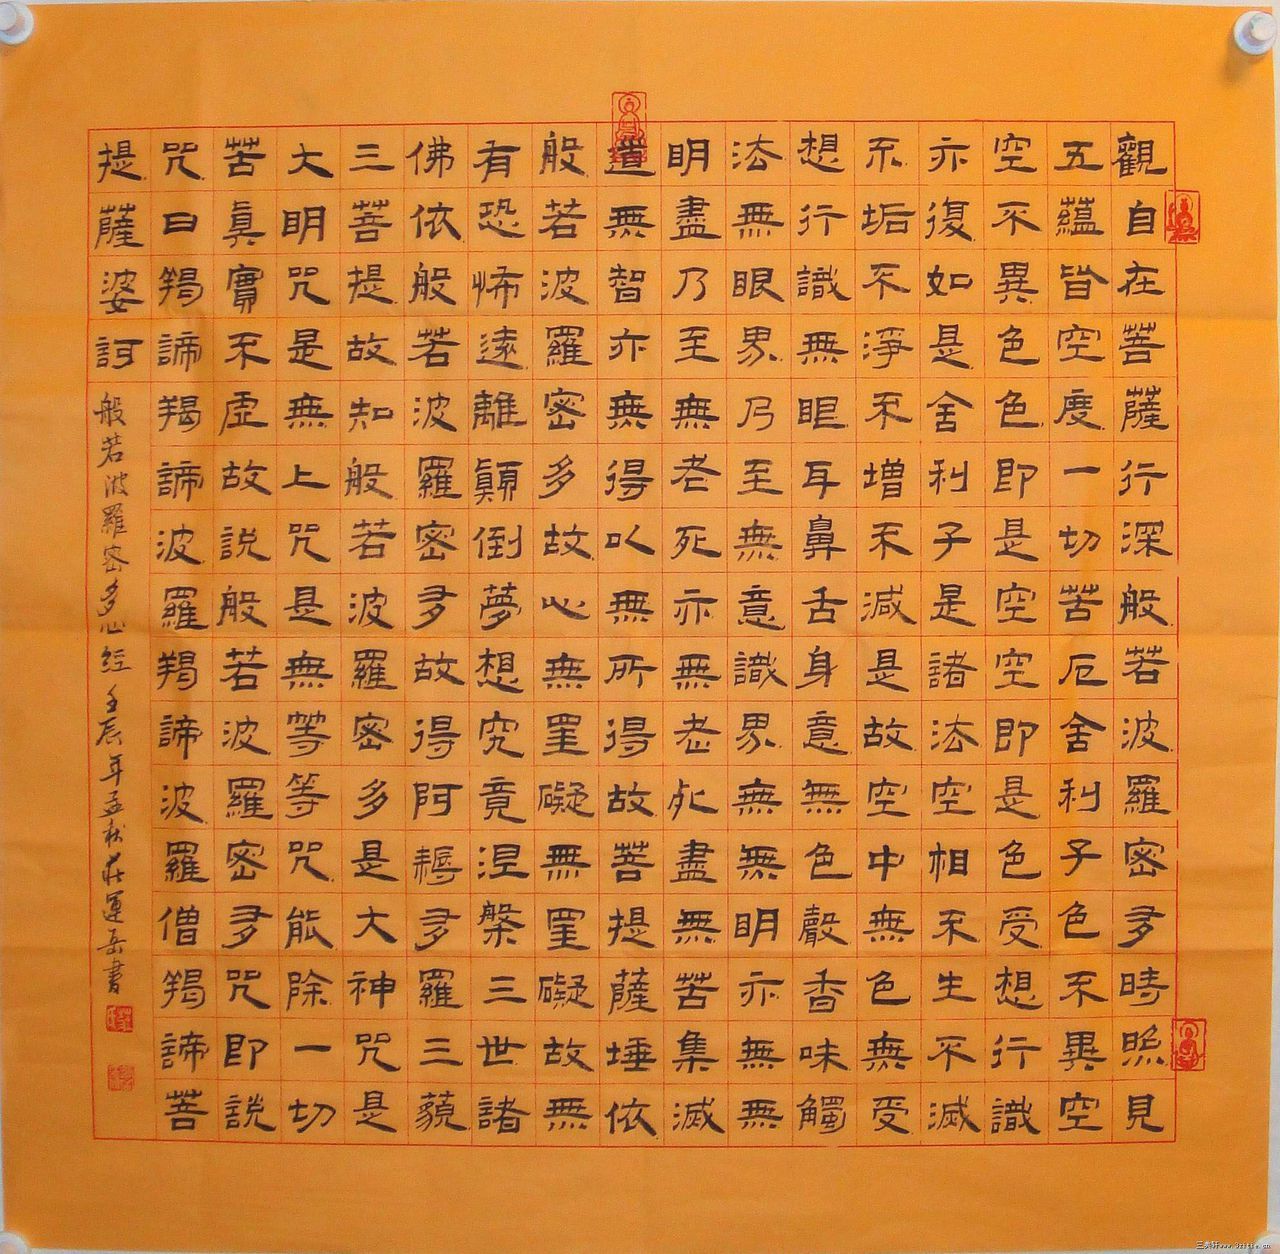 觀自在菩薩行深般若波羅密多時照見
五蘊皆空度一切苦厄舍利子色不異空
空不異色色即是空空即是色受想行識
亦復如是舍利子是諸法空相不生不滅
不垢不淨不增不減是故空中無色無受
想行識無眼耳鼻舌身意無色聲香味觸
法無眼界乃至無意識界無無明亦無無
明盡乃至無老死亦無老死盡無苦集滅
道無智亦無得以無所得故菩提薩埵依
般若波羅密多故心無罣礙無罣礙故無
有恐怖遠離顛倒夢想究竟涅槃三世諸
佛依般若波羅密多故得阿耨多羅三藐
三菩提故知般若波羅密多是大神咒是
大明咒是無上咒是無等等咒能除一切
苦眞實不虛故說般若波羅密多咒即說
咒曰羯諦羯諦波羅羯諦波羅僧羯諦菩
提薩婆訶
般若波羅密多心經 壬辰年孟秋莊運岳書